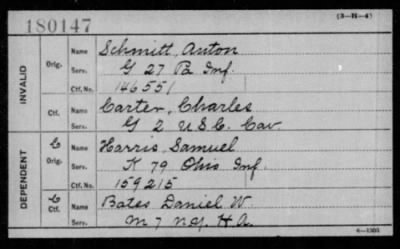 180147
(3—H—4)
INVALID
Orig.
Name Schmitt, Anton
Serv. G 27 Pa Inf.
Ctf. No. 146551
Ctf.
Name Carter, Charles
Serv. G 2 U.S.C. Cav.
DEPENDENT
C Orig.
Name Harris, Samuel
Serv. K 79 Ohio Inf.
Ctf. No. 159215
C Ctf.
Name Bates Daniel W.
Serv. M 7 N.Y. H.A.
6—1303